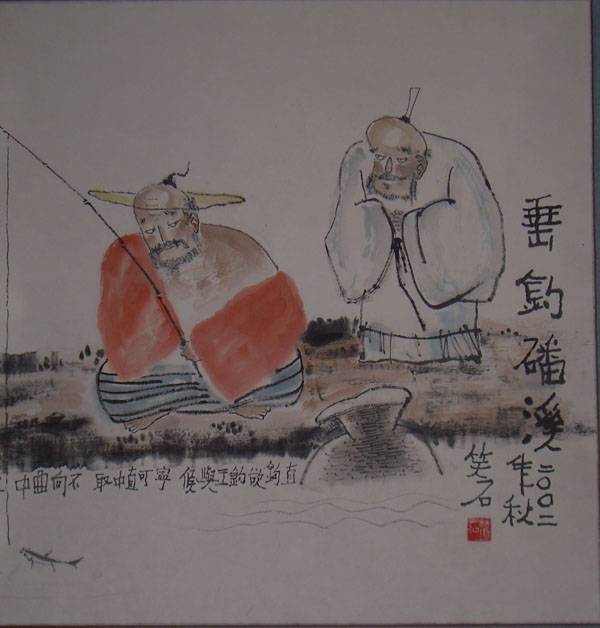 垂釣磻溪
二〇〇二
年秋
笑石
直鈎欲釣王與侯 寧可直中取 不向曲中